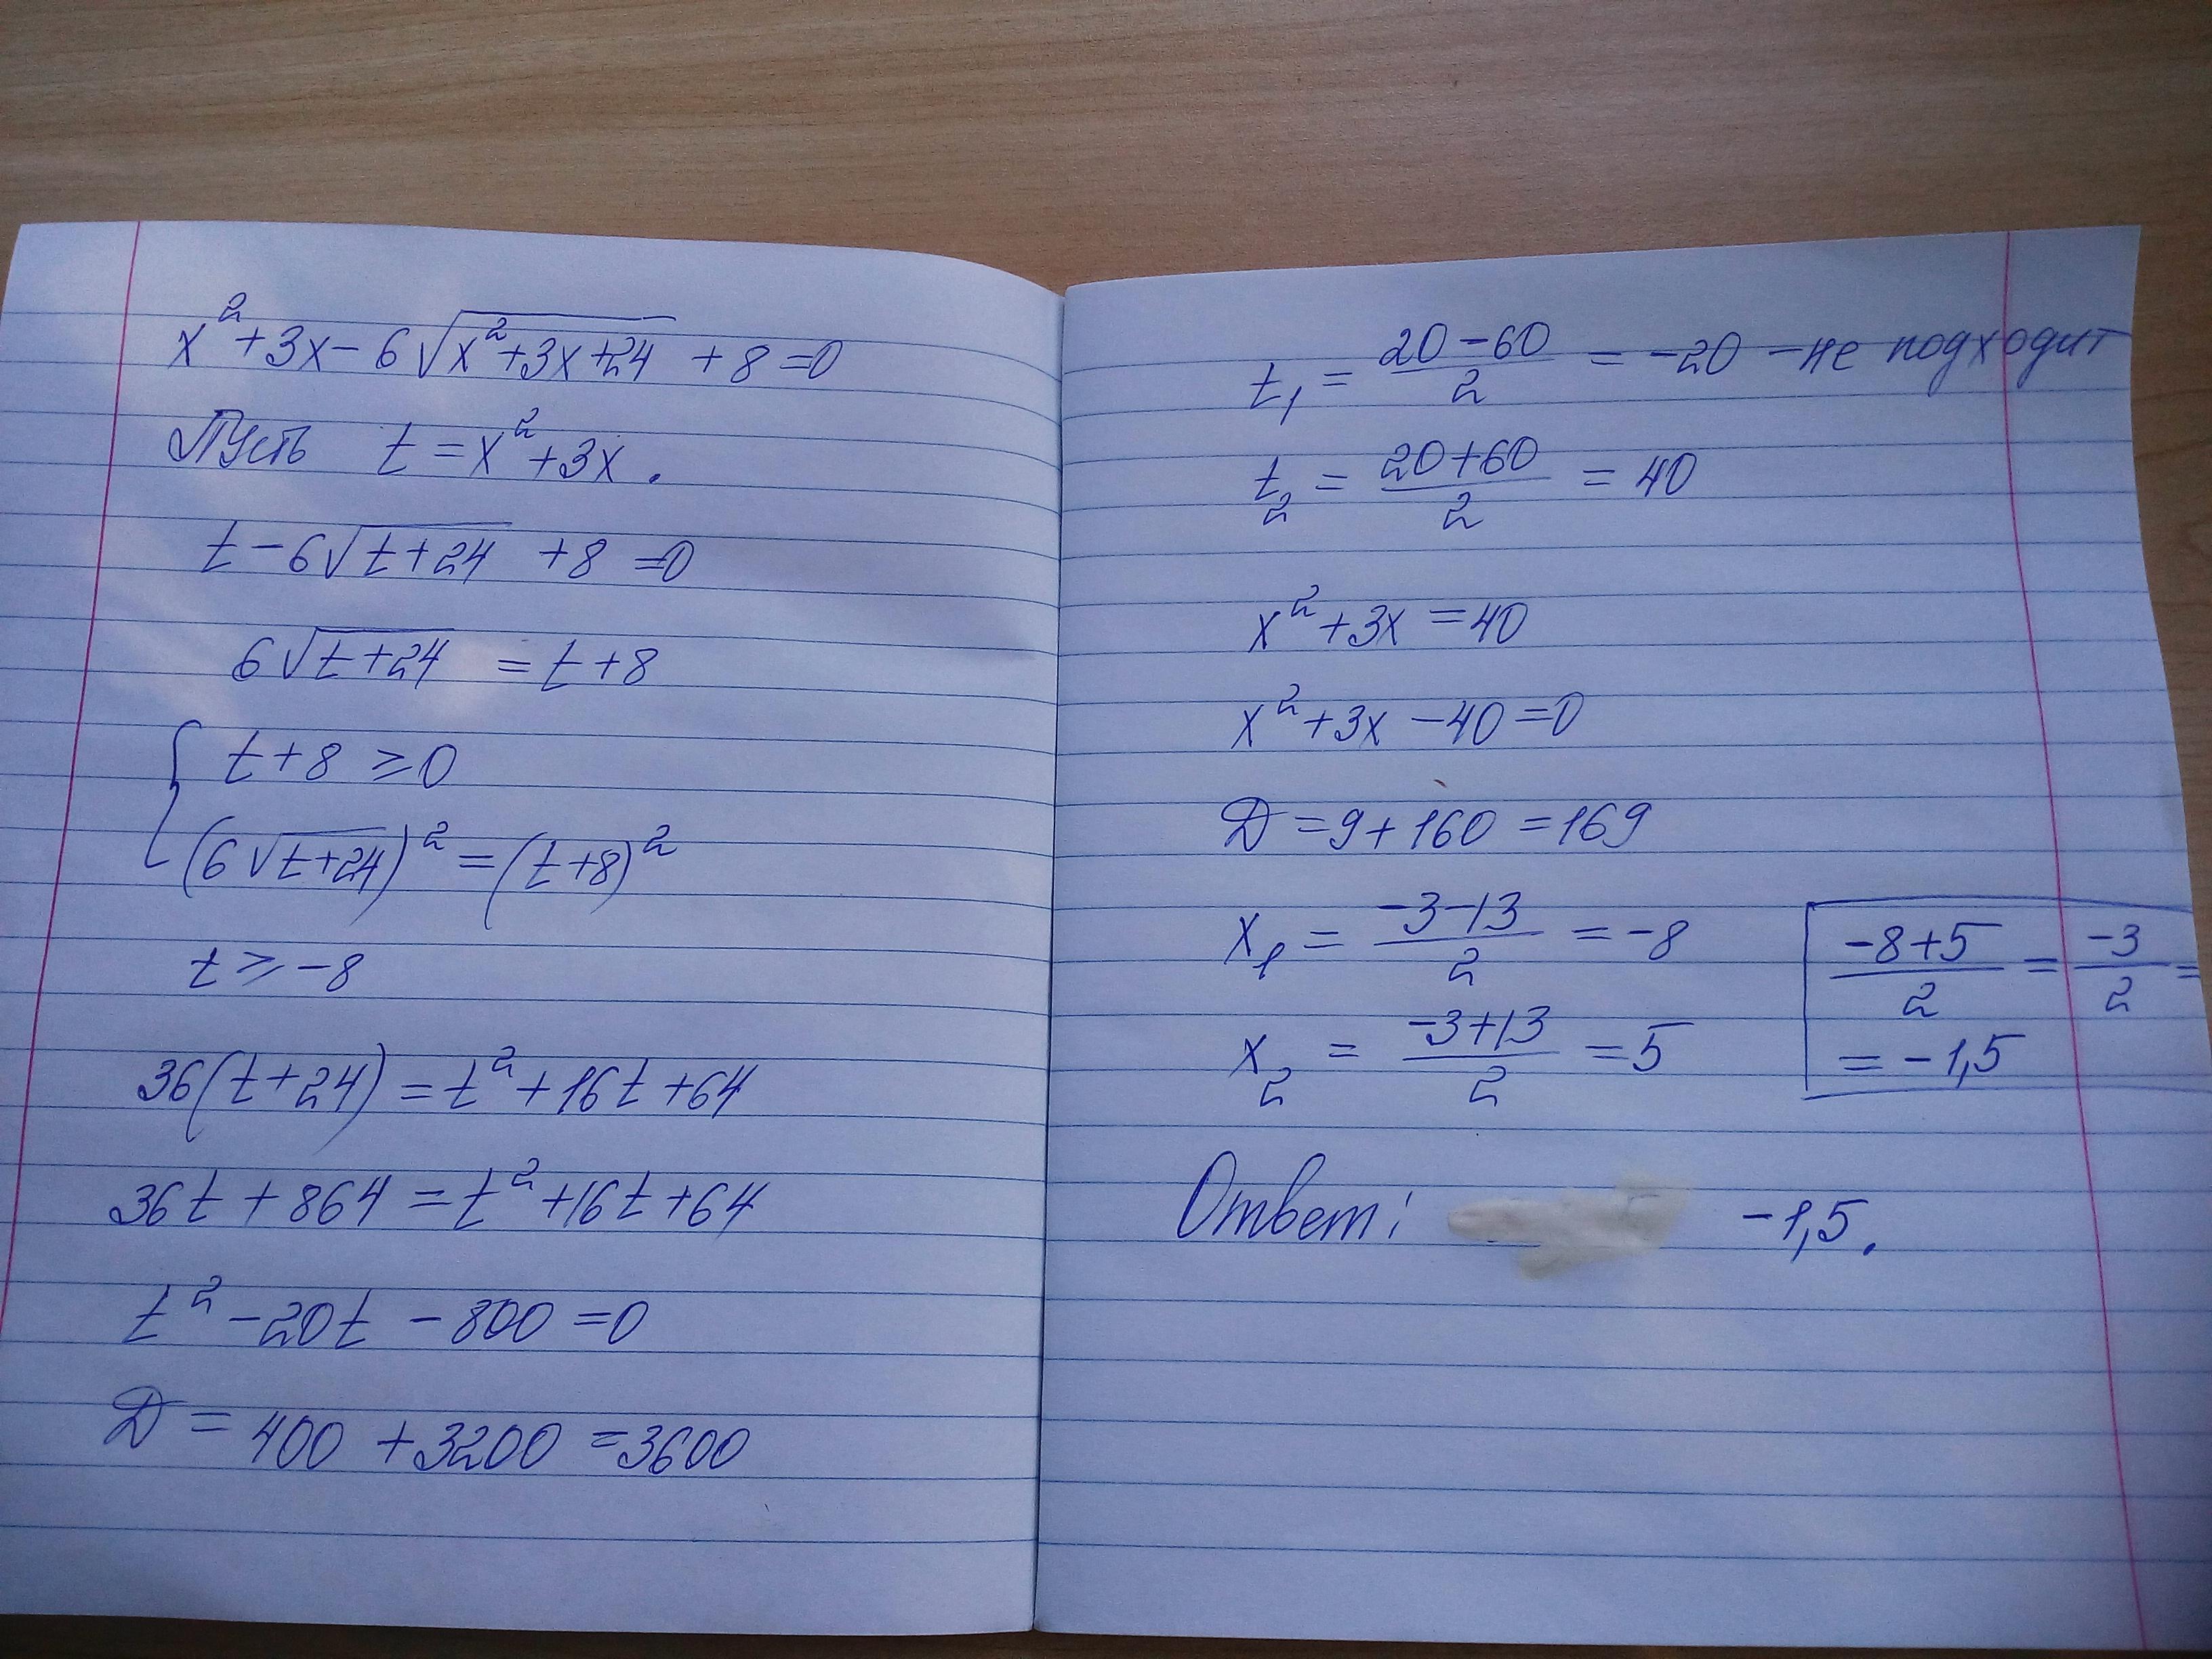 x² + 3x − 6√(x² + 3x + 24) + 8 = 0
Пусть t = x² + 3x.
t − 6√(t + 24) + 8 = 0
6√(t + 24) = t + 8
{ t + 8 ⩾ 0
(6√(t + 24))² = (t + 8)²
t ⩾ −8
36(t + 24) = t² + 16t + 64
36t + 864 = t² + 16t + 64
t² − 20t − 800 = 0
D = 400 + 3200 = 3600
t₁ = (20 − 60)/2 = −20 − не подходит
t₂ = (20 + 60)/2 = 40
x² + 3x = 40
x² + 3x − 40 = 0
D = 9 + 160 = 169
x₁ = (−3 − 13)/2 = −8
x₂ = (−3 + 13)/2 = 5
(−8 + 5)/2 = −3/2 =
= −1,5
Ответ: −1,5.